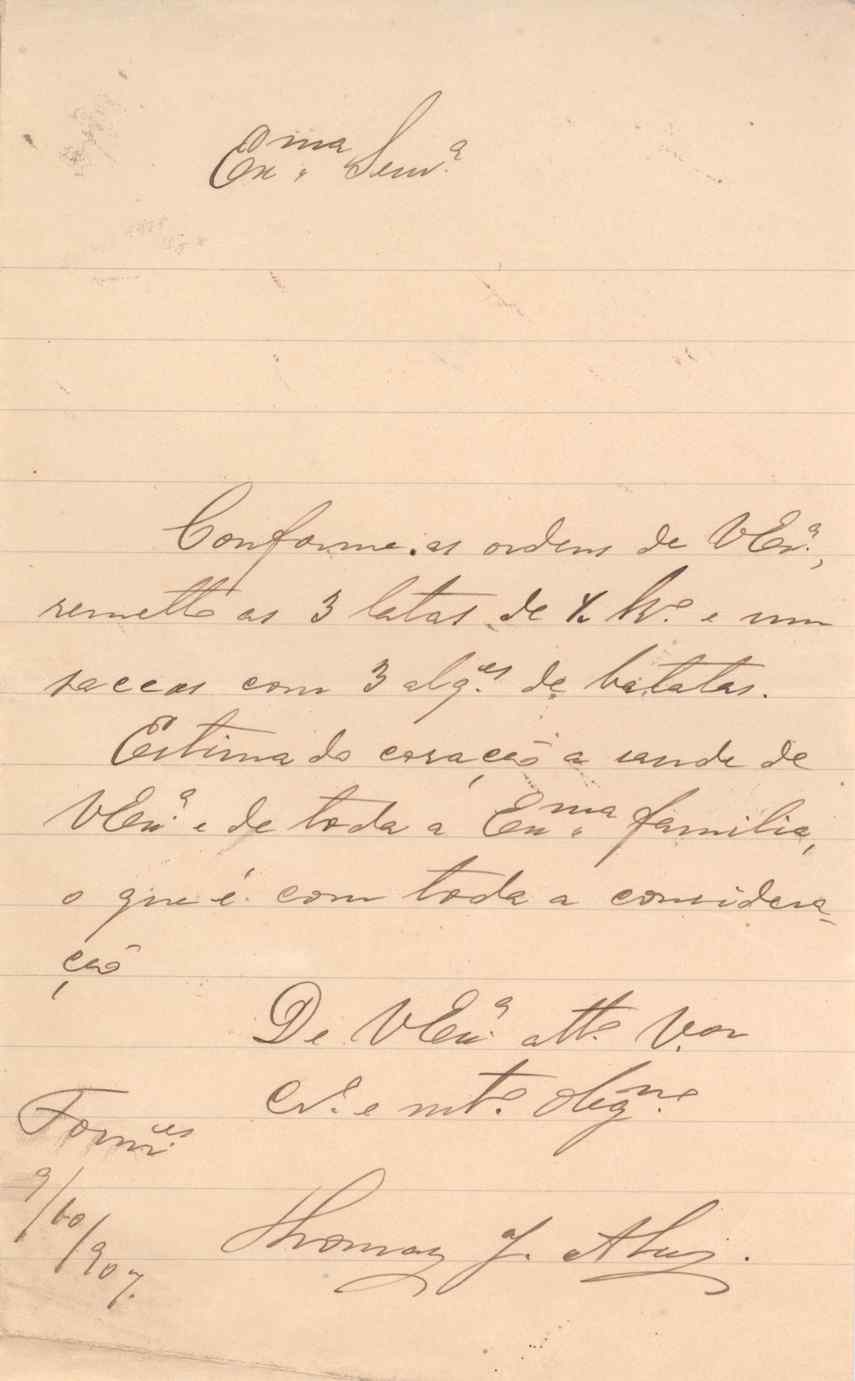 Ex.ma Senr.a
Conforme as ordens de V Ex.a,
remetto as 3 latas de ½ k.o e um
saccos com 3 alq.es de batatas.
Estima do coração a saude de
V Ex.a e de toda a Ex.ma familia,
o que é com toda a considera-
ção
De V Ex.a att.o V.or
Cr.o e mt.o obgr.mo
9/10/907.
Thomaz J.